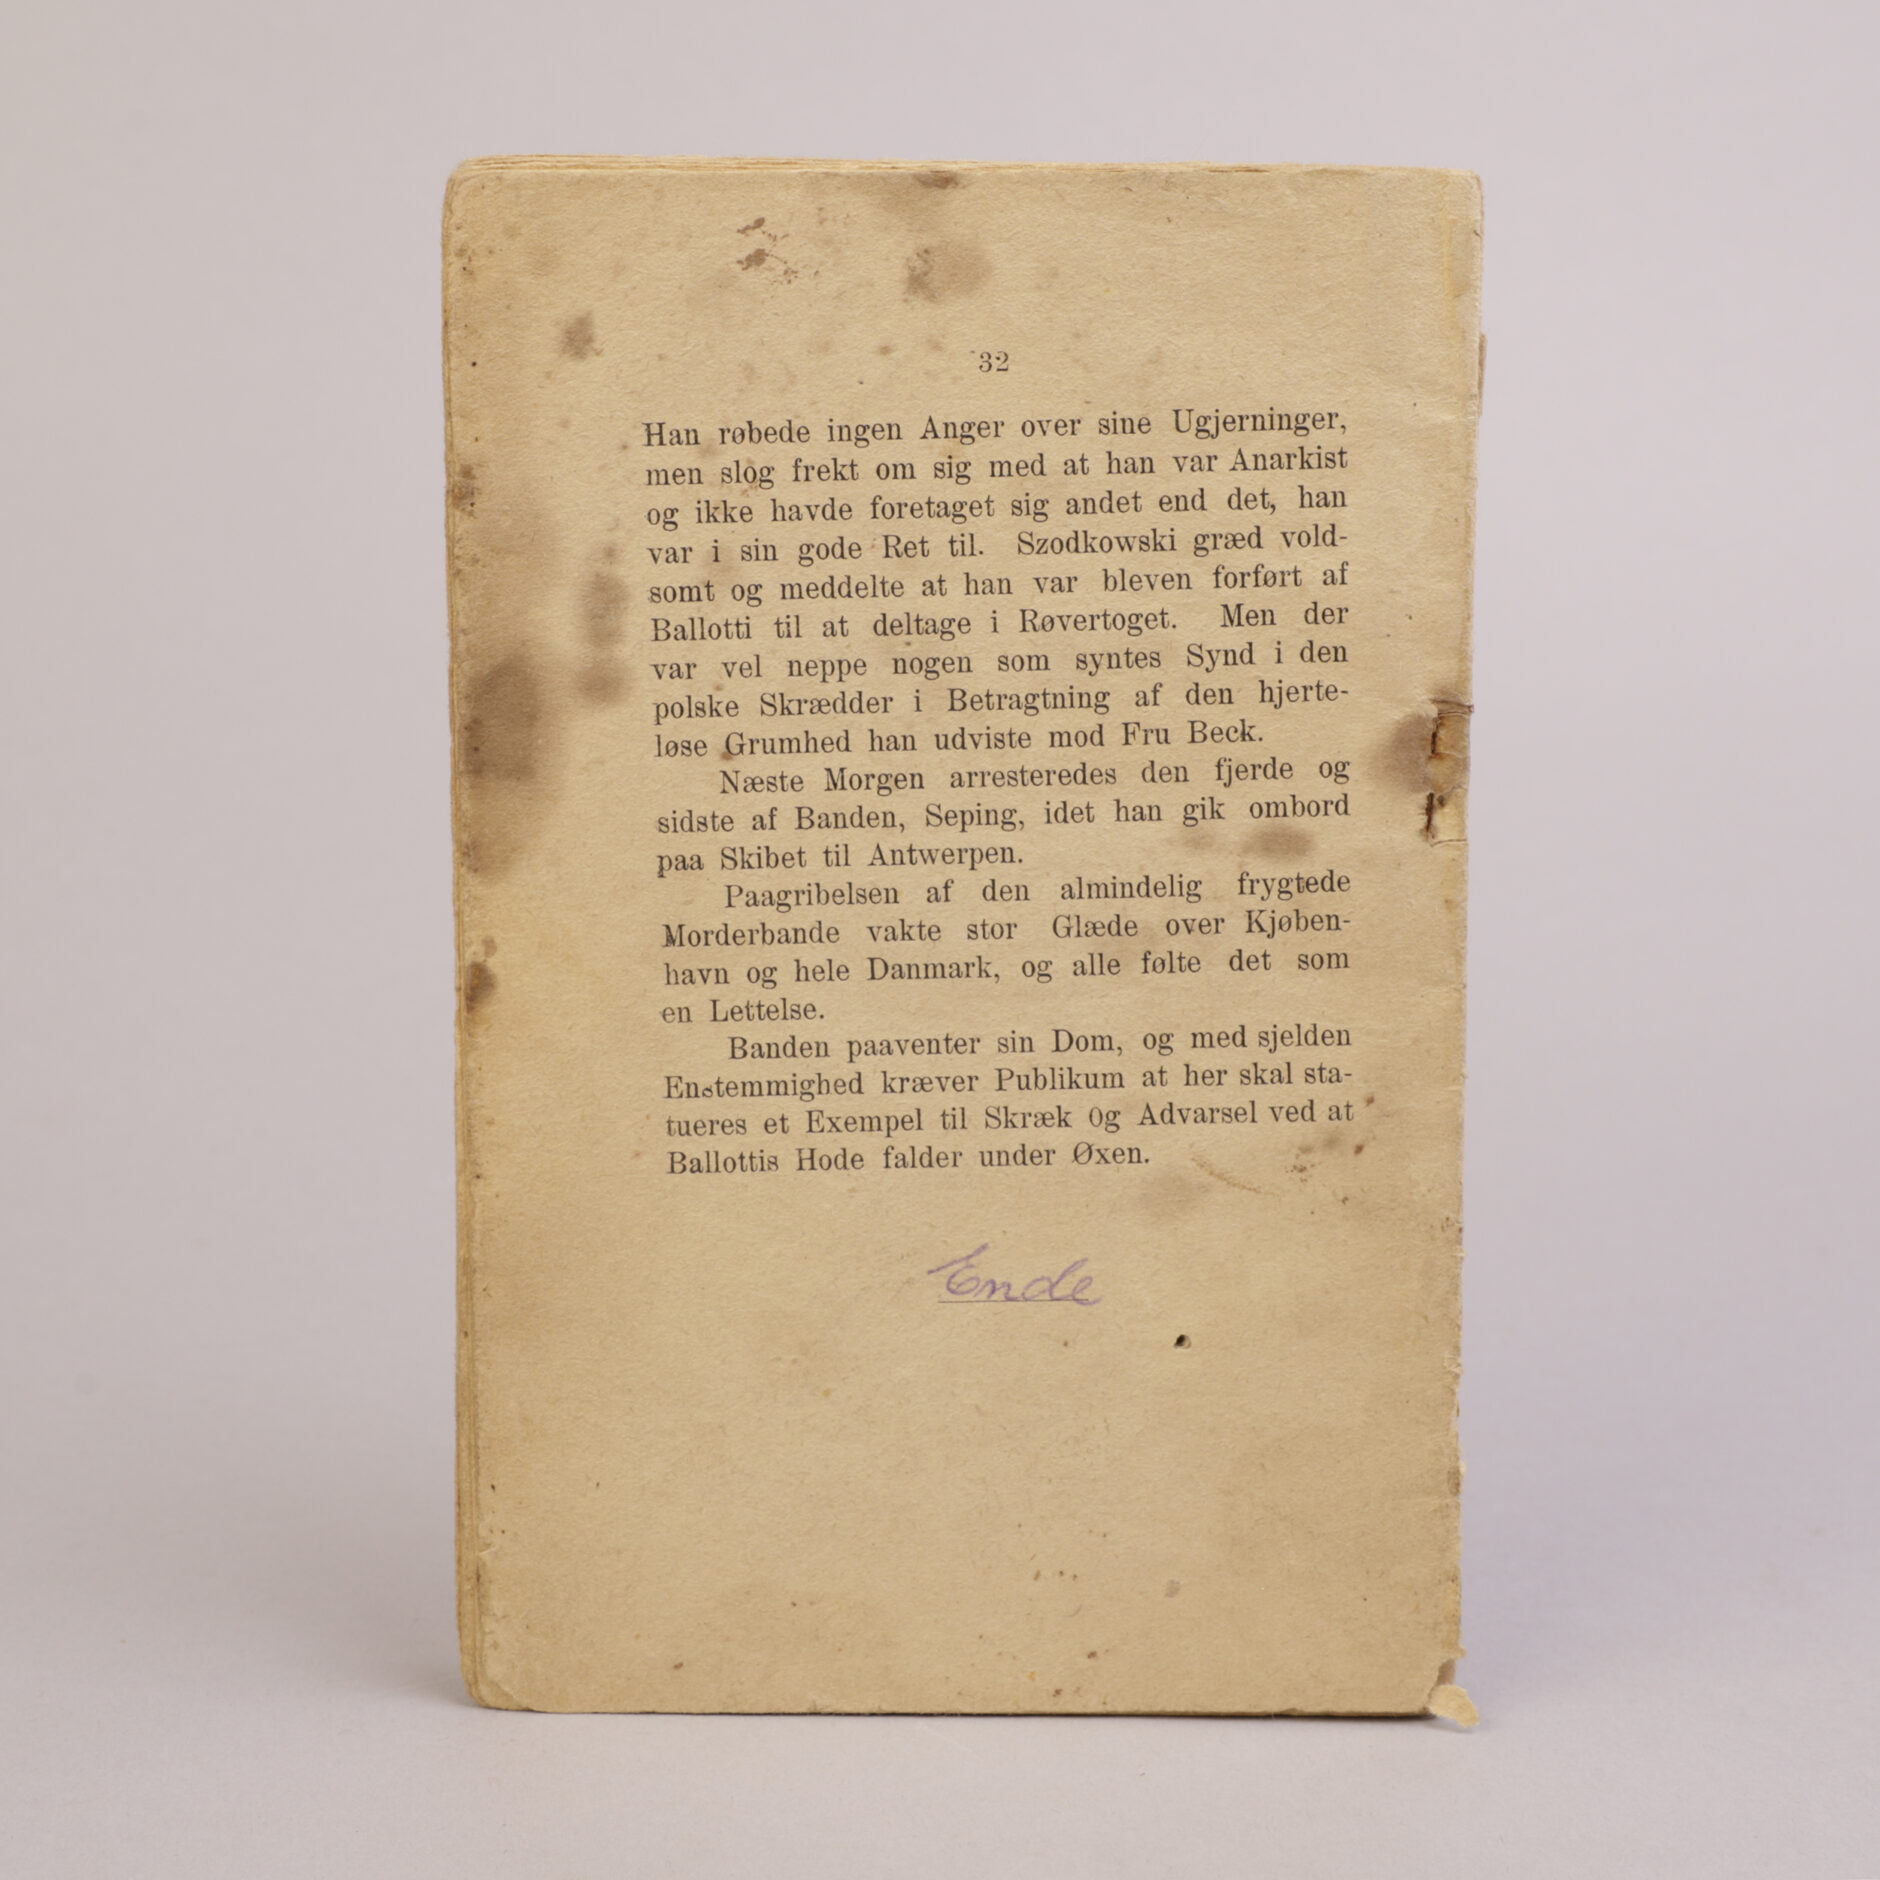 32
Han røbede ingen Anger over sine Ugjerninger,
men slog frekt om sig med at han var Anarkist
og ikke havde foretaget sig andet end det, han
var i sin gode Ret til. Szodkowski græd vold-
somt og meddelte at han var bleven forført af
Ballotti til at deltage i Røvertoget. Men der
var vel neppe nogen som syntes Synd i den
polske Skrædder i Betragtning af den hjerte-
løse Grumhed han udviste mod Fru Beck.
Næste Morgen arresteredes den fjerde og
sidste af Banden, Seping, idet han gik ombord
paa Skibet til Antwerpen.
Paagribelsen af den almindelig frygtede
Morderbande vakte stor Glæde over Kjøben-
havn og hele Danmark, og alle følte det som
en Lettelse.
Banden paaventer sin Dom, og med sjelden
Enstemmighed kræver Publikum at her skal sta-
tueres et Exempel til Skræk og Advarsel ved at
Ballottis Hode falder under Øxen.
Ende